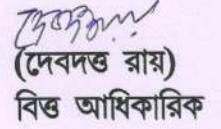 (দেবদত্ত রায়)
বিত্ত আধিকারিক